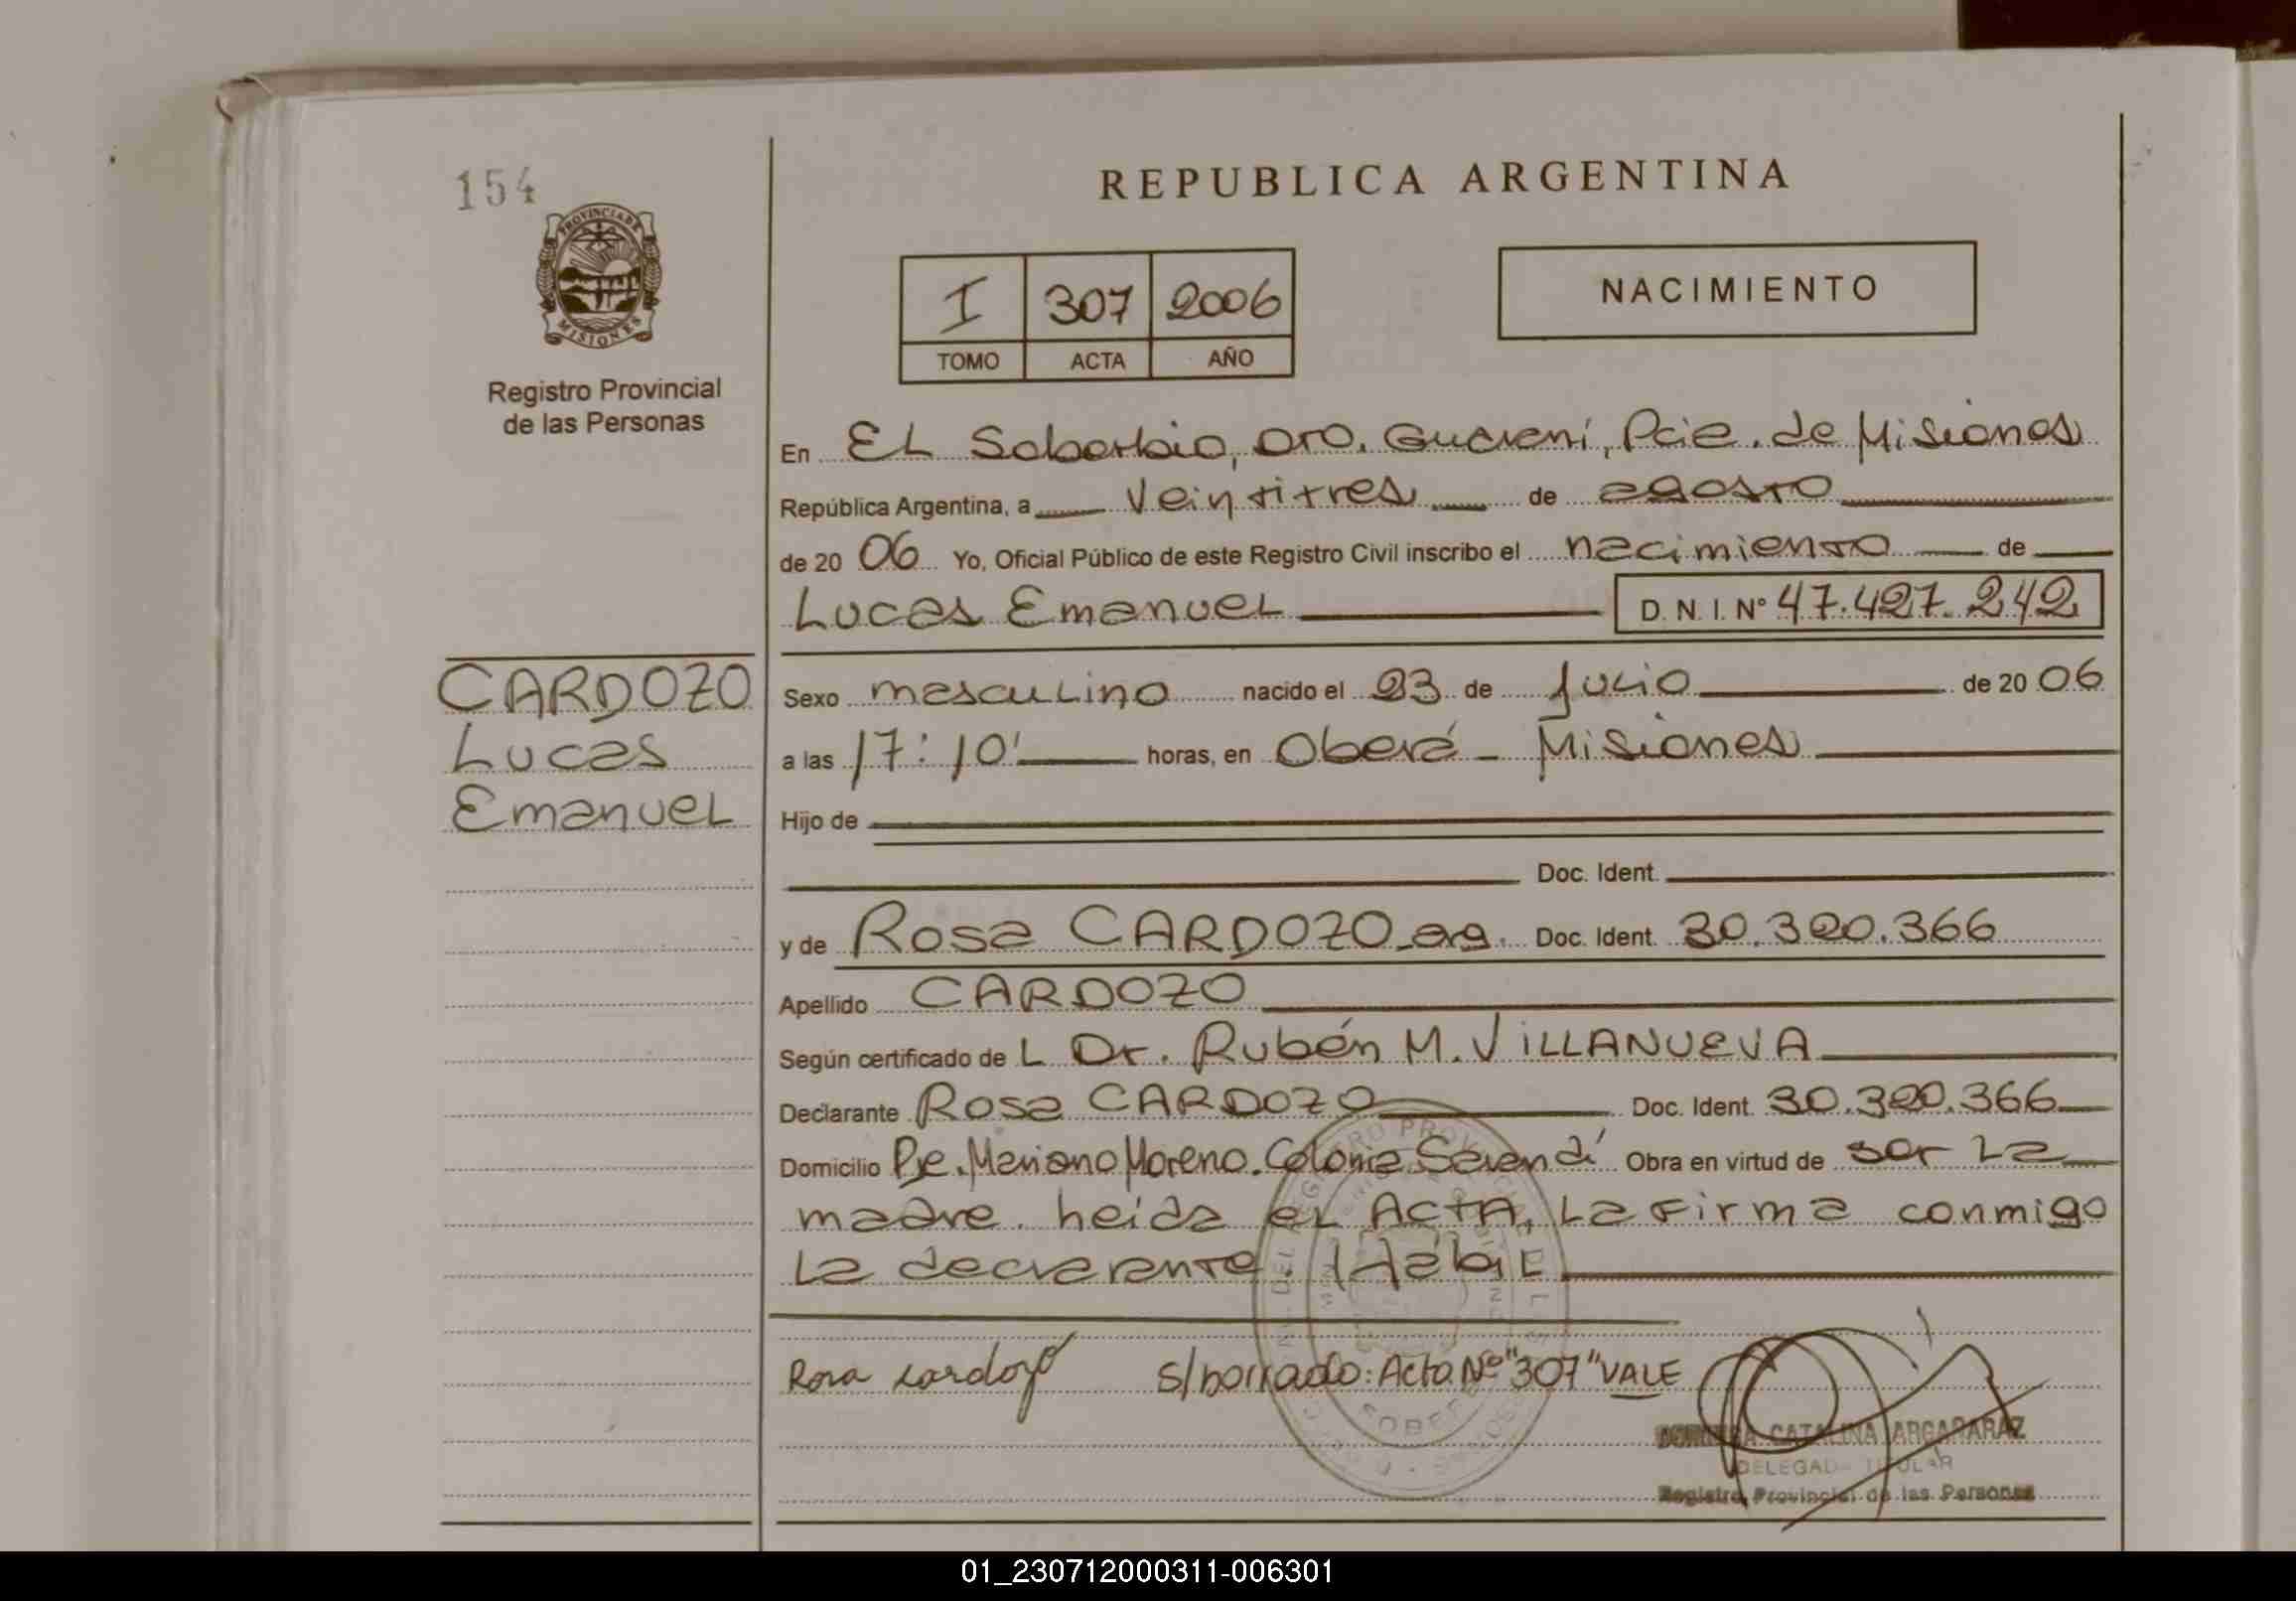 154
PROVINCIA DE
MISIONES
Registro Provincial
de las Personas
REPUBLICA ARGENTINA
I 307 2006
TOMO ACTA AÑO
NACIMIENTO
En EL Soberbio, Dto. Guaraní, Pcia. de Misiones
República Argentina, a veintitres de agosto
de 20 06 Yo, Oficial Público de este Registro Civil inscribo el nacimiento de
Lucas Emanuel D. N. I. Nº 47.427.242
CARDOZO
Lucas
Emanuel
Sexo masculino nacido el 23 de julio de 20 06
a las 17:10' horas, en Oberá - Misiones
Hijo de
Doc. Ident.
y de Rosa CARDOZO arg. Doc. Ident. 30.320.366
Apellido CARDOZO
Según certificado de L Dr. Rubén M. VILLANUEVA
Declarante Rosa CARDOZO Doc. Ident. 30.320.366
Domicilio Pje. Mariano Moreno. Colonia Sarandí Obra en virtud de ser La
madre. Leída el ACTA, La firma conmigo
La declarante. Hábil
Rosa Cardozo s/borrado: Acta Nº "307" VALE
CATALINA ARGARARAZ
DELEGADA TITULAR
Registro Provincial de las Personas
01_230712000311-006301